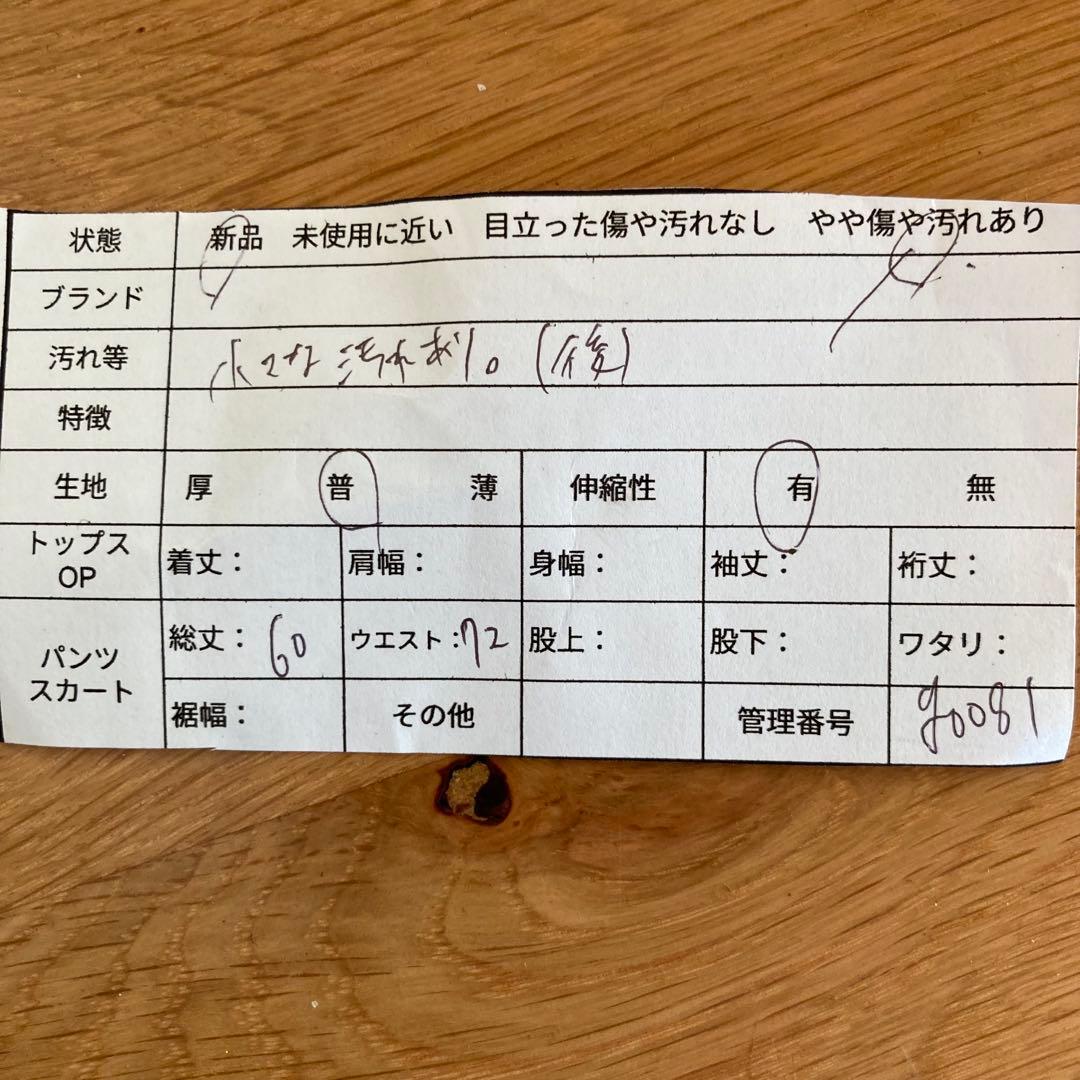 状態 新品 未使用に近い 目立った傷や汚れなし やや傷や汚れあり
ブランド
汚れ等 小さな汚れあり。(後)
特徴
生地 厚 普 薄 伸縮性 有 無
トップス OP 着丈: 肩幅: 身幅: 袖丈: 裄丈:
パンツ スカート 総丈:60 ウエスト:72 股上: 股下: ワタリ:
裾幅: その他 管理番号 g0081